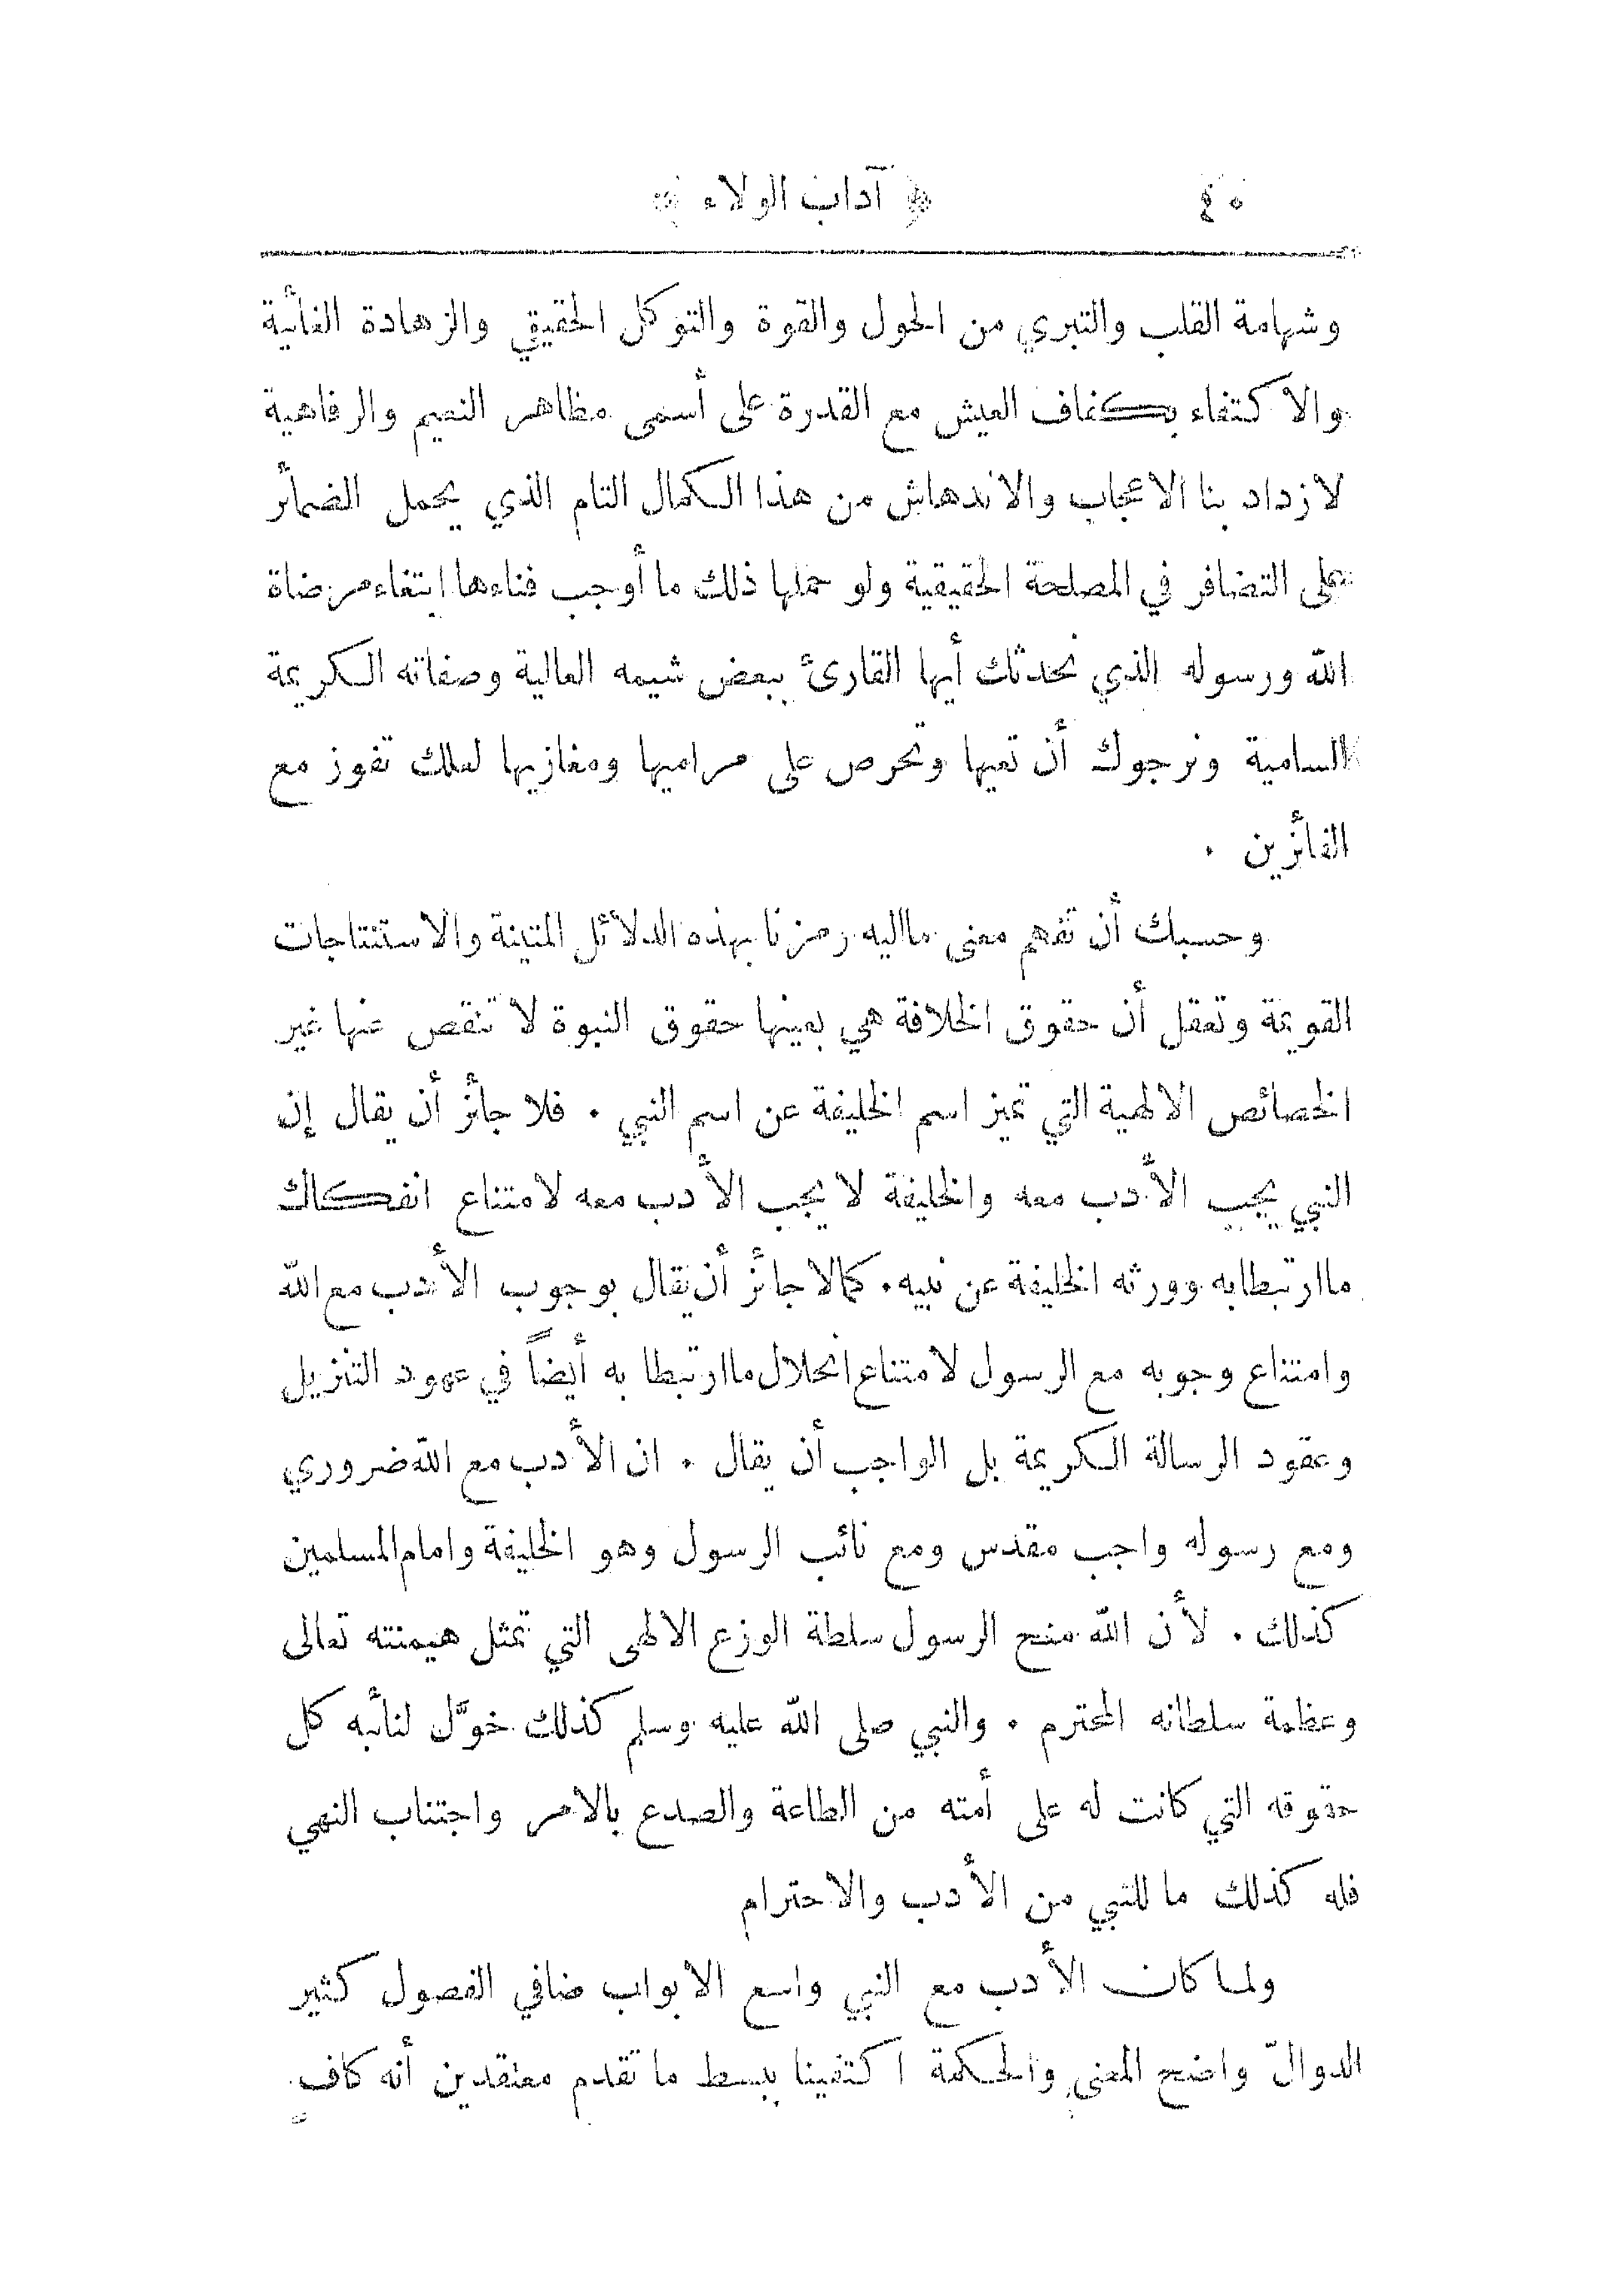 ٤٠ ﴿ آداب الولاء ﴾
وشهامة القلب والتبري من الحول والقوة والتوكل الحقيقي والزهادة الغائية
والاكتفاء بكفاف العيش مع القدرة على أسمى مظاهر النعيم والرفاهية
لازداد بنا الاعجاب والاندهاش من هذا الكمال التام الذي يحمل الضمائر
على التضافر في المصلحة الحقيقية ولو حملها ذلك ما أوجب فناءها ابتغاء مرضاة
الله ورسوله الذي نحدثك أيها القارئ ببعض شيمه العالية وصفاته الكريمة
السامية ونرجوك أن تعيها وتحرص على مراميها ومغازيها لعلك تفوز مع
الفائزين .
وحسبك أن تفهم معنى مااليه رمزنا بهذه الدلائل المتينة والاستنتاجات
القويمة وتعقل أن حقوق الخلافة هي بعينها حقوق النبوة لا تنقص عنها غير
الخصائص الالهية التي تميز اسم الخليفة عن اسم النبي . فلا جائز أن يقال إن
النبي يجب الأدب معه والخليفة لا يجب الأدب معه لامتناع انفكاك
ماارتبطابه وورثه الخليفة عن نبيه . كمالا جائز أن يقال بوجوب الأدب مع الله
وامتناع وجوبه مع الرسول لامتناع انحلال ماارتبطا به أيضاً في عهود التنزيل
وعقود الرسالة الكريمة بل الواجب أن يقال . ان الأدب مع الله ضروري
ومع رسوله واجب مقدس ومع نائب الرسول وهو الخليفة وامام المسلمين
كذلك . لأن الله منح الرسول سلطة الوزع الالهى التي تمثل هيمنته تعالى
وعظمة سلطانه المحترم . والنبي صلى الله عليه وسلم كذلك خوَّل لنائبه كل
حقوقه التي كانت له على أمته من الطاعة والصدع بالامر واجتناب النهي
فله كذلك ما للنبي من الأدب والاحترام
ولما كان الأدب مع النبي واسع الابواب ضافي الفصول كثير
الدوالّ واضح المعنى والحكمة اكتفينا ببسط ما تقدم معتقدين أنه كافٍ